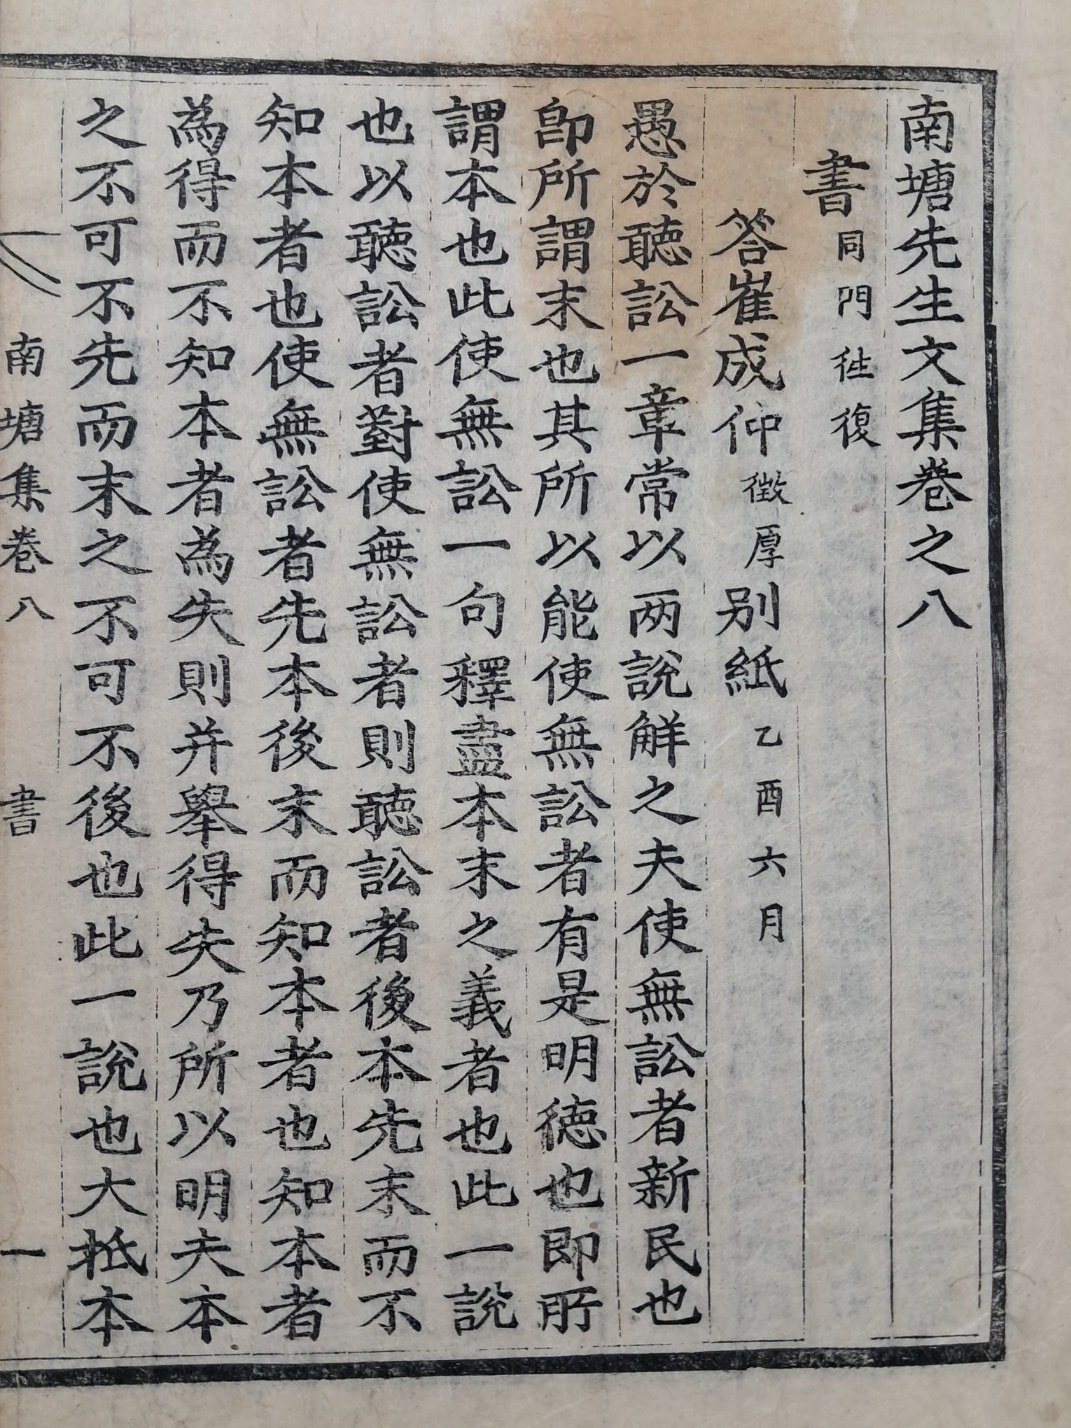 南塘先生文集卷之八
書同門徃復
答崔成仲徵厚别紙乙酉六月
愚於聽訟一章常以两說觧之夫使無訟者新民也
卽所謂末也其所以能使無訟者有是明德也即所
謂本也此使無訟一句釋盡本末之義者也此一說
也以聽訟者對使無訟者則聽訟者後本先末而不
知本者也使無訟者先本後末而知本者也知本者
為得而不知本者為失則并舉得失乃所以明夫本
之不可不先而末之不可不後也此一說也大抵本
南塘集卷八 書 一